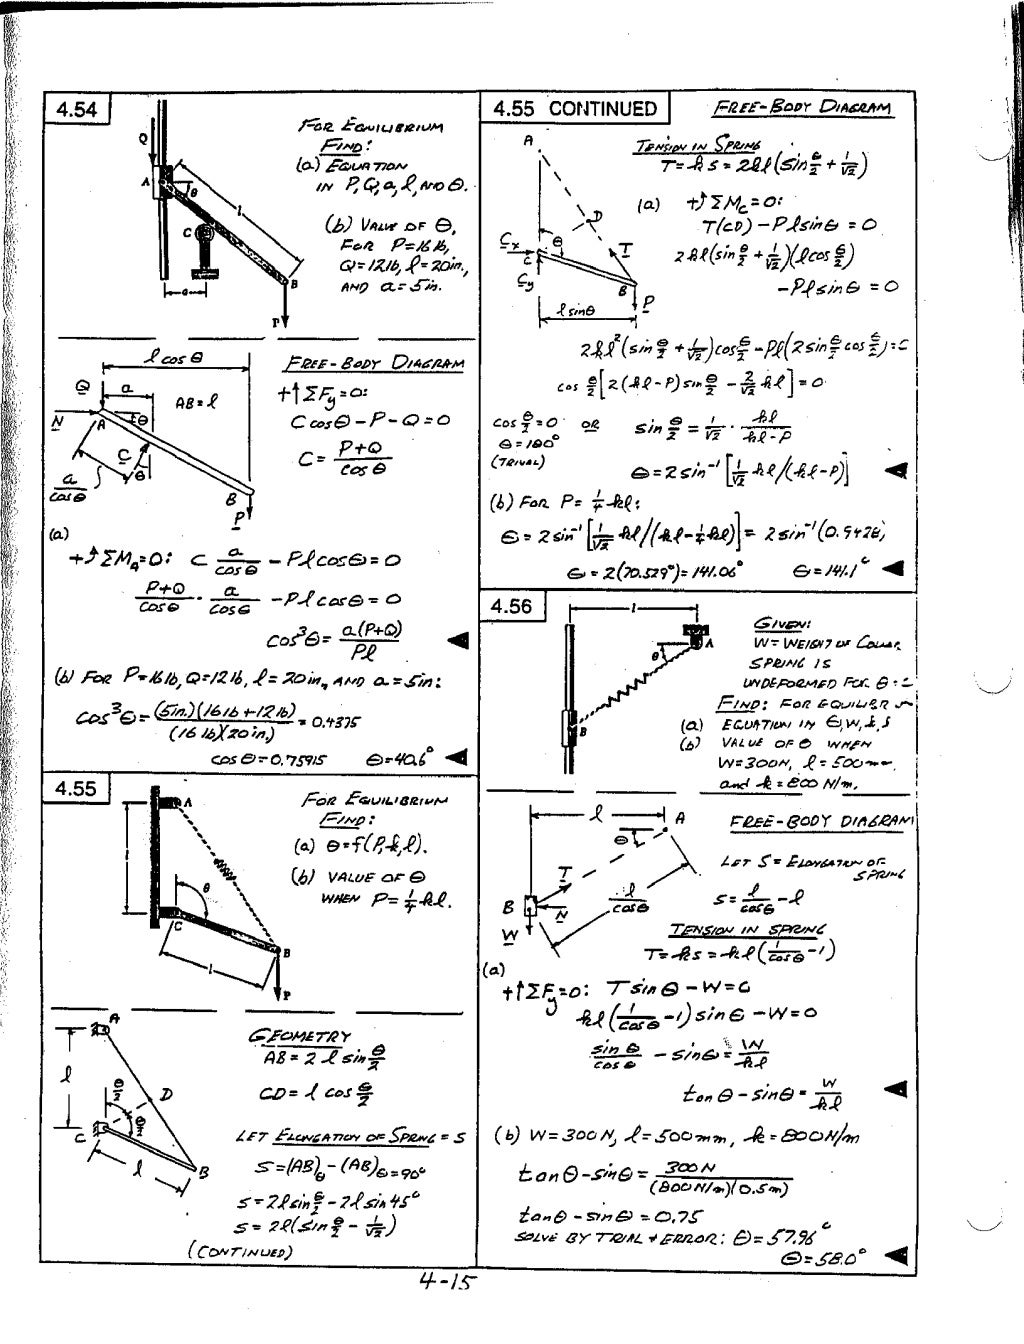 4.54
FOR EQUILIBRIUM
FIND:
(a) EQUATION
IN P, Q, a, l, AND θ.
(b) VALUE OF θ,
FOR P=16 lb,
Q=12 lb, l=20in.,
AND a=5in.
Q
A
θ
l
C
a
B
P
l cos θ
Q
a
AB=l
N
A
θ
C
θ
a/cos θ
B
P
FREE-BODY DIAGRAM
+↑ΣFy=0:
C cos θ - P - Q = 0
C = (P+Q)/cos θ
(a)
+↺ΣM_A=0: C a/cos θ - Pl cos θ = 0
(P+Q)/cos θ · a/cos θ - Pl cos θ = 0
cos³θ = a(P+Q)/Pl ◄
(b) FOR P=16 lb, Q=12 lb, l=20in., AND a=5in:
cos³θ = (5in.)(16 lb+12 lb)/(16 lb)(20in.) = 0.4375
cos θ = 0.75915 θ=40.6° ◄
4.55
FOR EQUILIBRIUM
FIND:
(a) θ=f(P,k,l).
(b) VALUE OF θ
WHEN P=¼kl.
A
l
θ
C
B
l
P
A
l
θ/2
D
C
θ/2
l
B
GEOMETRY
AB = 2 l sin θ/2
CD = l cos θ/2
LET ELONGATION OF SPRING = s
s=(AB)θ-(AB)θ=90°
s = 2l sin θ/2 - 2l sin 45°
s = 2l(sin θ/2 - 1/√2)
(CONTINUED)
4.55 CONTINUED
FREE-BODY DIAGRAM
A
D
Cx
C
θ
T
Cy
B
P
l sinθ
TENSION IN SPRING
T = k s = 2kl(sin θ/2 + 1/√2)
(a) +↺ΣM_C=0:
T(CD) - Pl sin θ = 0
2kl(sin θ/2 + 1/√2)(l cos θ/2)
- Pl sin θ = 0
2kl²(sin θ/2 + 1/√2)cos θ/2 - Pl(2 sin θ/2 cos θ/2)=0
cos θ/2 [2(kl-P) sin θ/2 - 2/√2 kl] = 0
cos θ/2 = 0 OR sin θ/2 = 1/√2 · kl/(kl-P)
θ=180°
(TRIVAL)
θ = 2 sin⁻¹[1/√2 kl/(kl-P)] ◄
(b) FOR P = ¼ kl:
θ = 2 sin⁻¹[1/√2 kl/(kl-¼kl)] = 2 sin⁻¹(0.9428)
θ = 2(70.529°)=141.06° θ=141.1° ◄
4.56
l
A
θ
B
GIVEN:
W=WEIGHT OF COLLAR
SPRING IS
UNDEFORMED FOR θ=
FIND: FOR EQUILIBR
(a) EQUATION IN θ,W,k,l
(b) VALUE OF θ WHEN
W=300N, l=500mm,
and k=800 N/m.
l
A
θ
T
B
N
W
l/cos θ
FREE-BODY DIAGRAM
LET S = ELONGATION OF
SPRING
s = l/cos θ - l
TENSION IN SPRING
T = ks = kl(1/cos θ - 1)
(a)
+↑ΣFy=0: T sin θ - W = 0
kl(1/cos θ - 1) sin θ - W = 0
sin θ/cos θ - sin θ = W/kl
tan θ - sin θ = W/kl ◄
(b) W=300N, l=500mm, k=800N/m
tan θ - sin θ = 300 N/(800 N/m)(0.5m)
tan θ - sin θ = 0.75
SOLVE BY TRIAL + ERROR: θ = 57.96°
θ=58.0° ◄
4-15